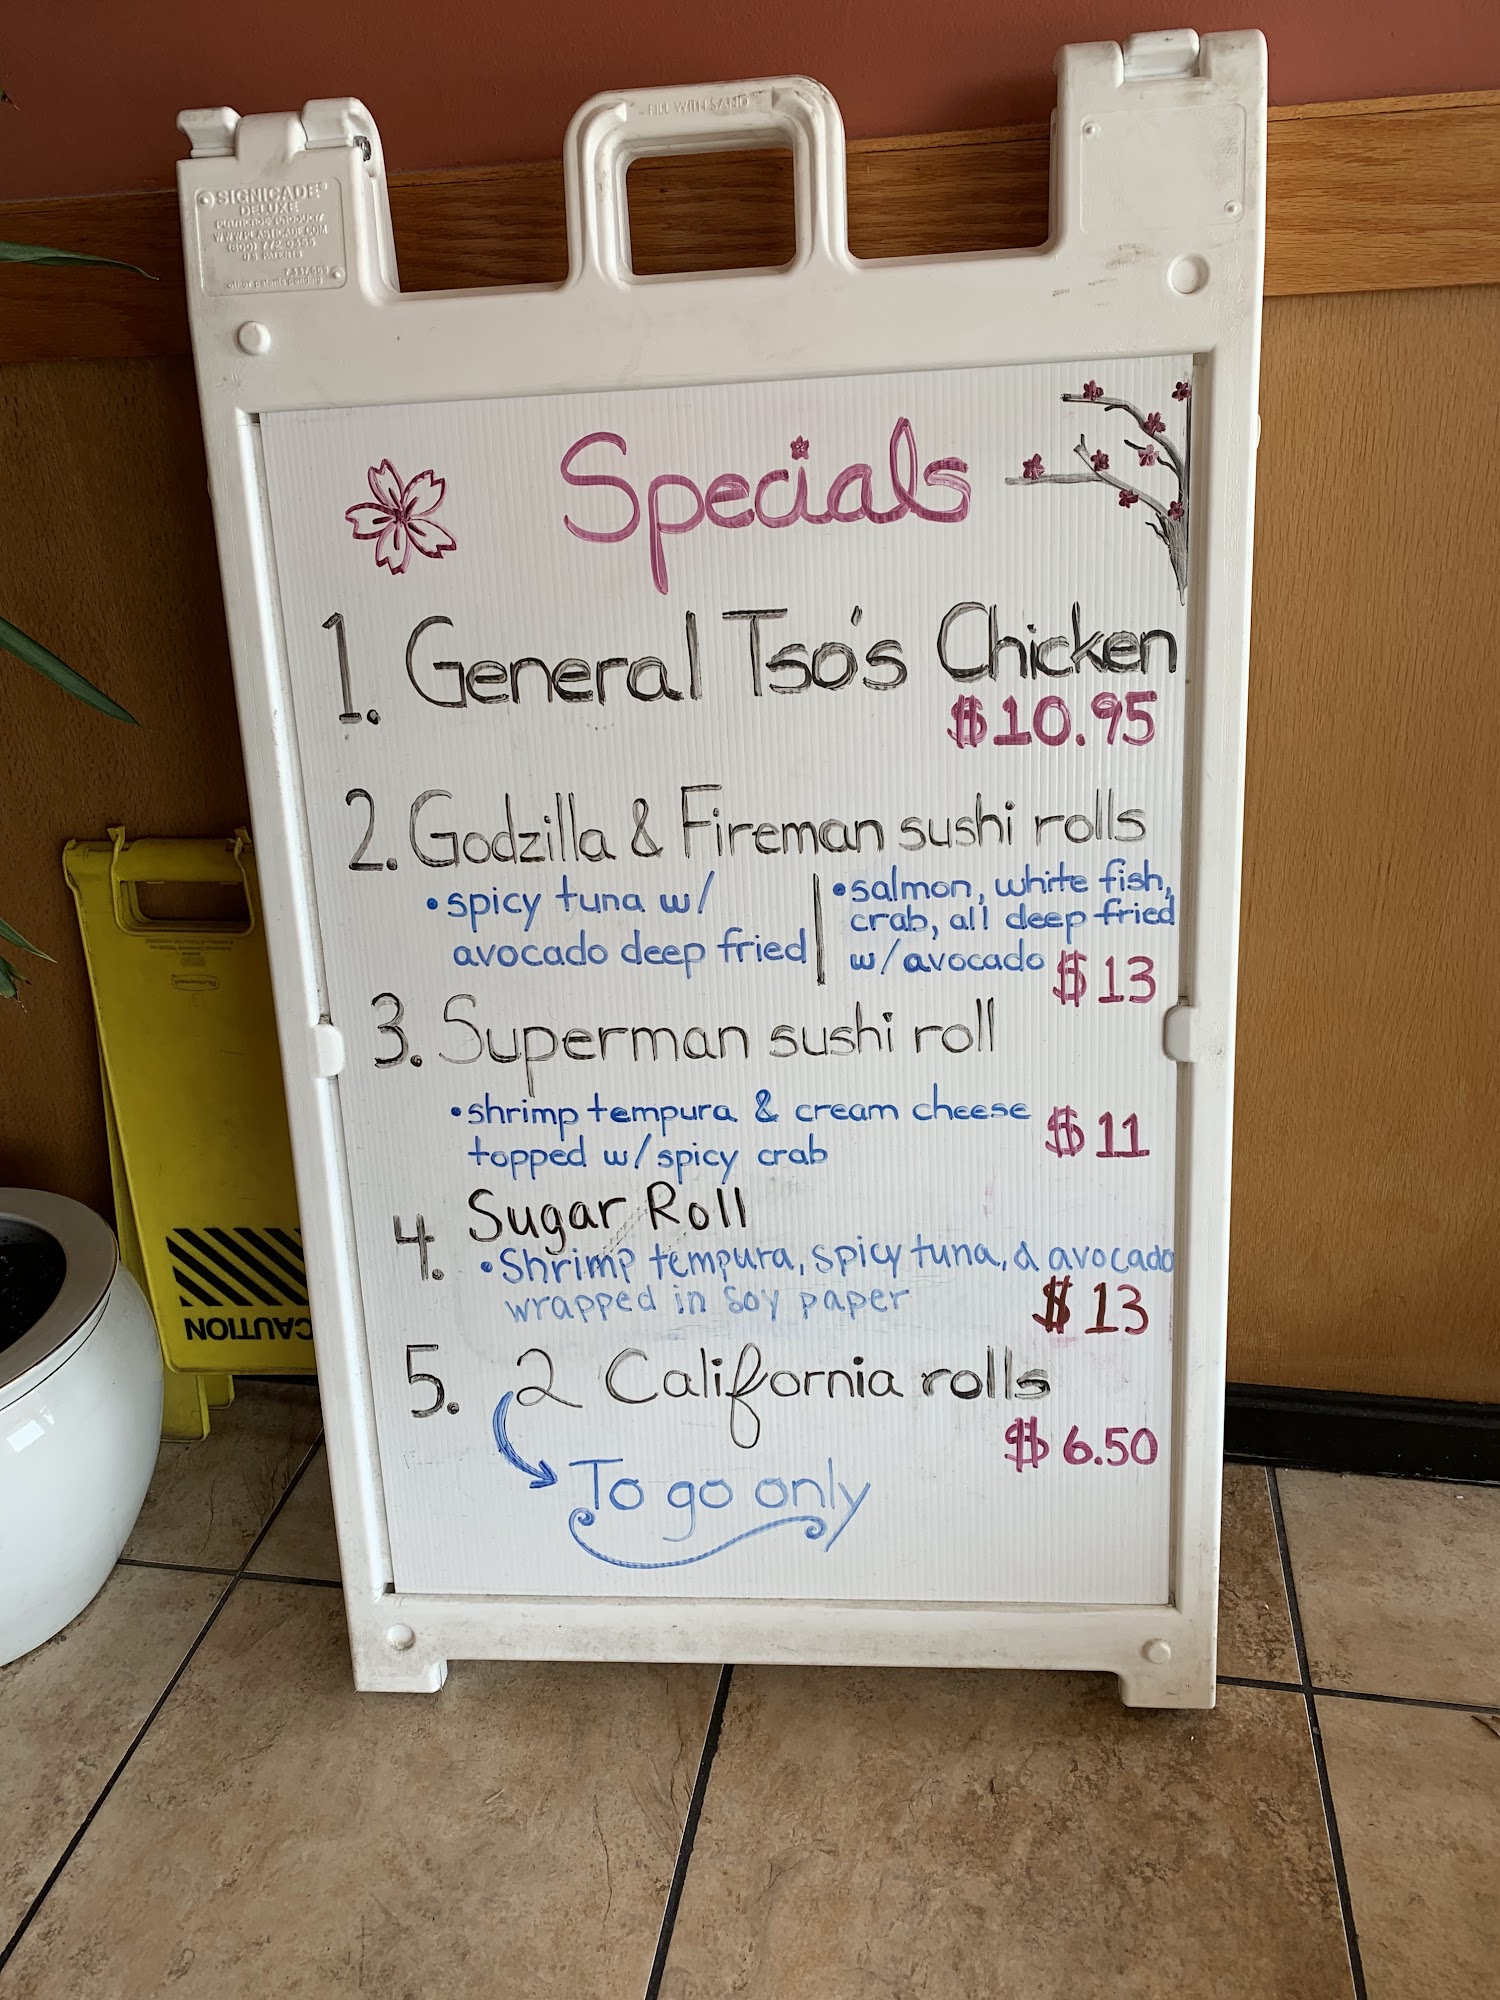 FILL WITH SAND
SIGNICADE®
DELUXE
WWW.PLASTICADE.COM
(800) 772-0355
U.S. PATENTS
other patents pending
Specials
1. General Tso's Chicken
$10.95
2. Godzilla & Fireman sushi rolls
• spicy tuna w/
avocado deep fried
• salmon, white fish,
crab, all deep fried
w/avocado
$13
3. Superman sushi roll
• shrimp tempura & cream cheese
topped w/spicy crab
$11
4. Sugar Roll
• Shrimp tempura, spicy tuna, & avocado
wrapped in soy paper
$13
5. 2 California rolls
$6.50
To go only
CAUTION